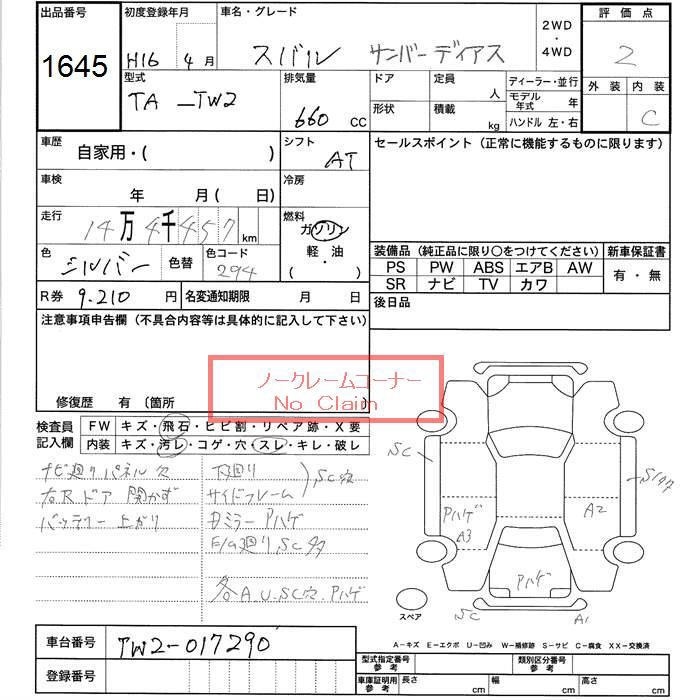 出品番号
1645
初度登録年月
H16 4月
車名・グレード
スバル サンバーディアス
2WD
・
4WD
評価点
2
外装 内装
C
型式
TA-TW2
排気量
660 CC
ドア
形状
定員
人
積載
kg
ディーラー・並行
モデル年式 年
ハンドル 左・右
車歴
自家用・( )
シフト
AT
車検
年 月( 日)
冷房
走行
14万4千457km
燃料
ガソリン
軽・油
( ・ )
色
シルバー
色替
色コード
294
R券 9.210円
名変通知期限 月 日
セールスポイント(正常に機能するものに限ります)
装備品(純正品に限り○をつけてください)
PS PW ABS エアB AW
SR ナビ TV カワ
新車保証書
有・無
後日品
注意事項申告欄(不具合内容等は具体的に記入して下さい)
ノークレームコーナー
No Claim
修復歴 有〔箇所
検査員
記入欄
FW キズ・飛石・ヒビ割・リペア跡・X要
内装 キズ・汚レ・コゲ・穴・スレ・キレ・破レ
ナビ廻りパネル欠
右Rドア開かず
バッテリー上がり
下廻り
サイドフレーム
SC穴
Dミラー Pハゲ
F/G廻りSC多
各A.U.SC穴.Pハゲ
SC
Pハゲ
A3
A2
Pハゲ
SC
A1
スペア
A-キズ E-エクボ U-凹み W-補修跡 S-サビ C-腐食 XX-交換済
車台番号 TW2-017290
登録番号
型式指定番号
参考
類別区分番号
参考
車庫証明用
参考
長さ cm
幅 cm
高さ cm